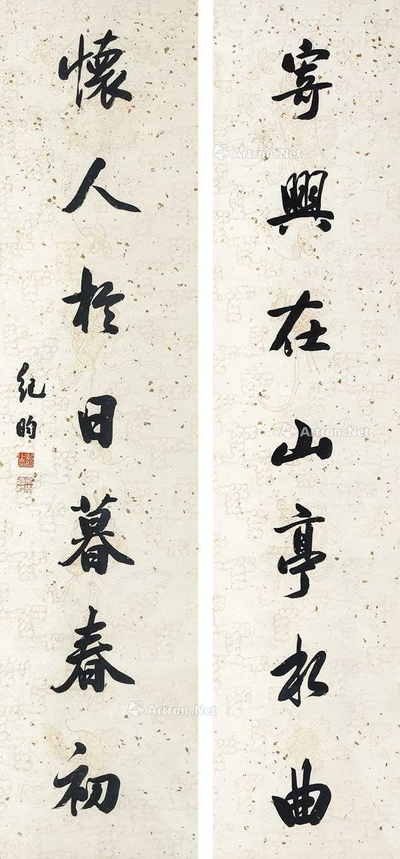 寄興在山亭水曲
懷人於日暮春初
紀昀
Artron.Net
Artron.Net